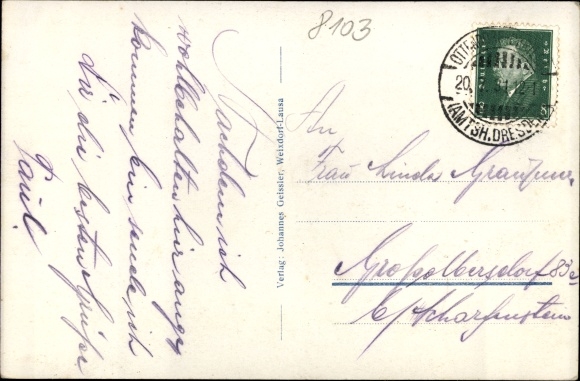 8103
Nachdem ich
wohlbehalten hier ange-
kommen bin sende ich
Dir die besten Grüße
Paul.
Verlag: Johannes Geissler, Weixdorf-Lausa
20.
(AMTSH. DRESDEN)
An
Frau Linda
Großolbersdorf 83c
b/Scharfenstein